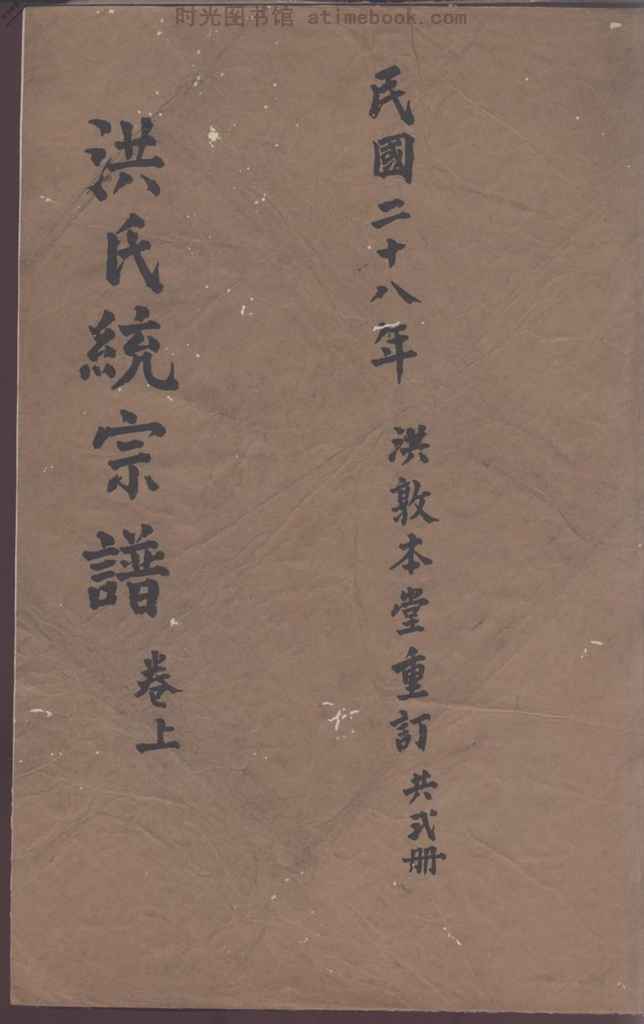 时光图书馆 atimebook.com
民國二十八年 洪敦本堂重訂 共弍册
洪氏統宗譜 卷上